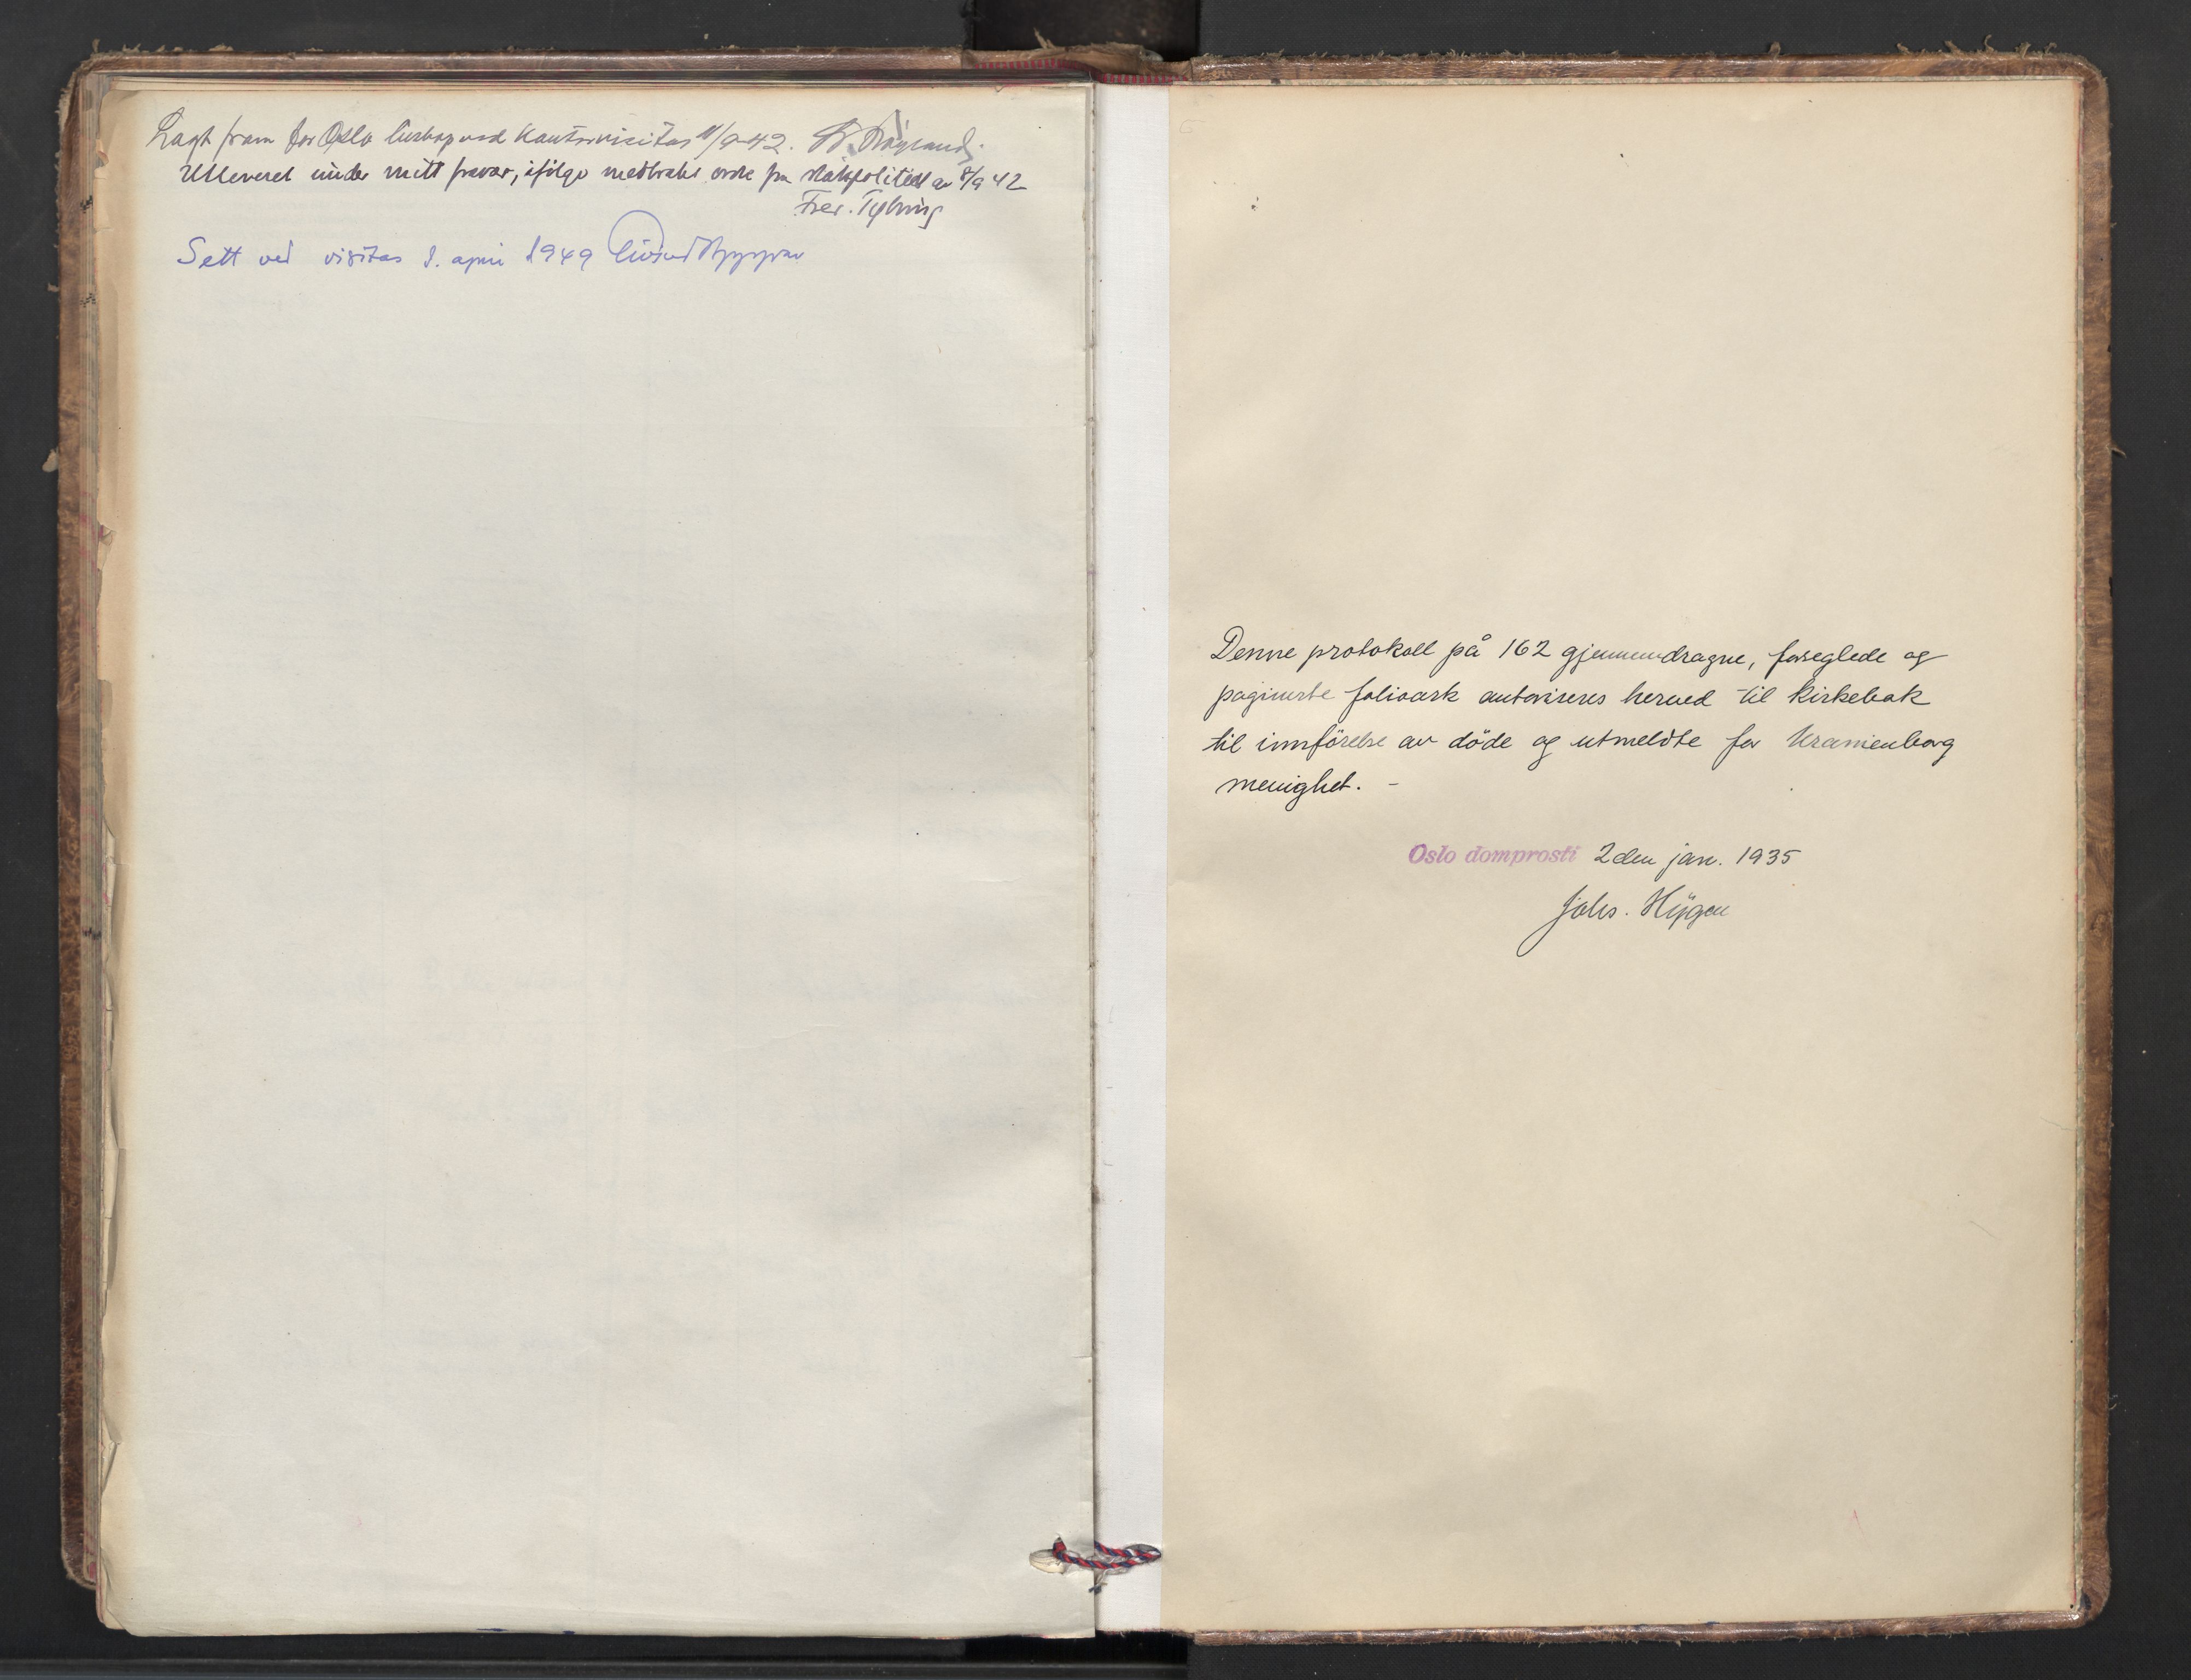 Lagt fram for Oslo biskop ved kontorvisitas 11/9-42.
Utleveret under mitt fravær, ifölge medbrakt ordre fra statspolitiet av 8/9 42
Fred.
Sett ved visitas 8. april 1949 Eivind Berggrav
Denne protokoll på 162 gjennemdragne, forseglede og
paginerte folioark autoriseres herved til kirkebok
til innförelse av döde og utmeldte for Uranienborg
menighet. -
Oslo domprosti 2den jan. 1935
Johs. Hygen